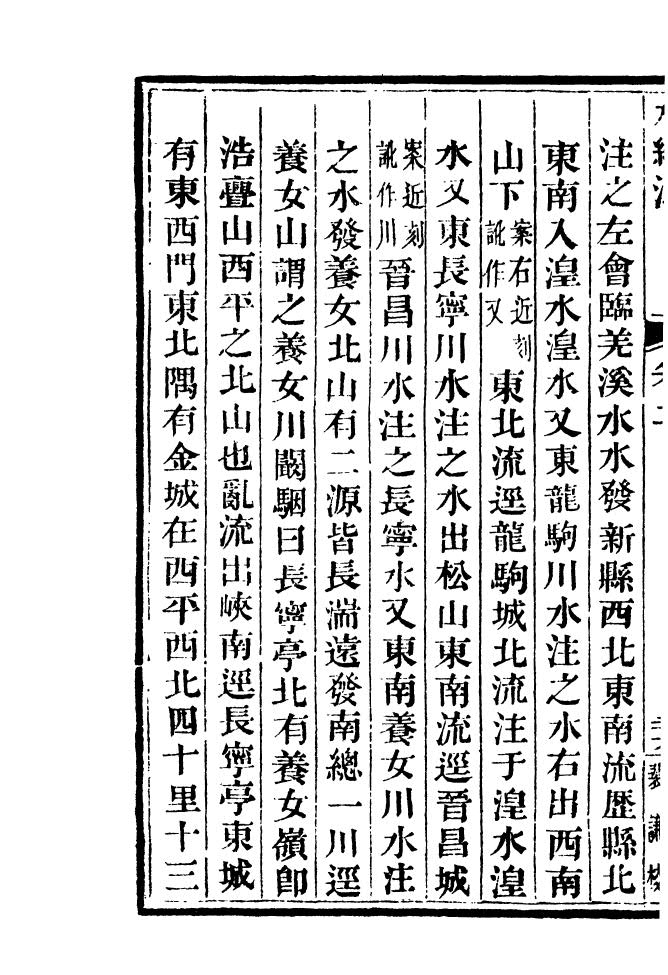 注之左會臨羌溪水水發新縣西北東南流歷縣北
東南入湟水湟水又東龍駒川水注之水右出西南
山下案右近刻訛作又東北流逕龍駒城北流注于湟水湟
水又東長寧川水注之水出松山東南流逕晉昌城
案近刻訛作川晉昌川水注之長寧水又東南養女川水注
之水發養女北山有二源皆長湍遠發南總一川逕
養女山謂之養女川闞駰曰長寧亭北有養女嶺卽
浩亹山西平之北山也亂流出峽南逕長寧亭東城
有東西門東北隅有金城在西平西北四十里十三